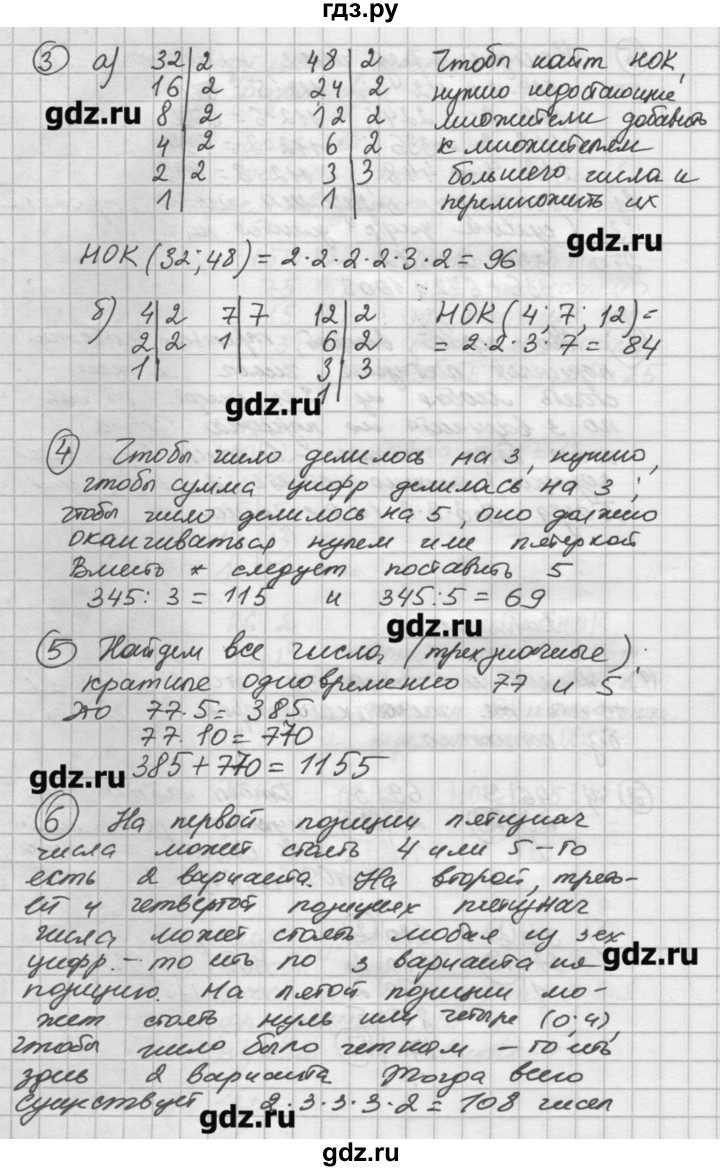 гдз.ру
③ а) 32|2 48|2 Чтобы найт НОК,
16|2 24|2 нужно недостающие
8|2 12|2 множители добавить
4|2 6|2 к множителям
2|2 3|3 большего числа и
1| 1| перемножить их
gdz.ru
gdz.ru
НОК (32; 48) = 2·2·2·2·3·2 = 96
б) 4|2 7|7 12|2 НОК (4; 7; 12) =
2|2 1| 6|2 = 2·2·3·7 = 84
1| 3|3
1
gdz.ru
④ Чтобы число делилось на 3, нужно,
чтобы сумма цифр делилась на 3;
чтобы число делилось на 5, оно должно
оканчиваться нулем или пятеркой
Вместо * следует поставить 5
345 : 3 = 115 и 345 : 5 = 69
gdz.ru
⑤ Найдем все числа, (трехзначные),
кратные одновременно 77 и 5.
Это 77·5 = 385
77·10 = 770
385 + 770 = 1155
gdz.ru
⑥ На первой позиции пятизнач
числа может стоять 4 или 5 – то
есть 2 варианта. На второй, треть-
ей и четвертой позициях пятизнач
числа может стоять любая из 3ех
цифр. – то есть по 3 варианта на
gdz.ru
позицию. На пятой позиции мо-
жет стоять нуль или четыре (0; 4),
чтобы число было четным – то есть
здесь 2 варианта Тогда всего
существует 2·3·3·3·2 = 108 чисел
gdz.ru
gdz.ru